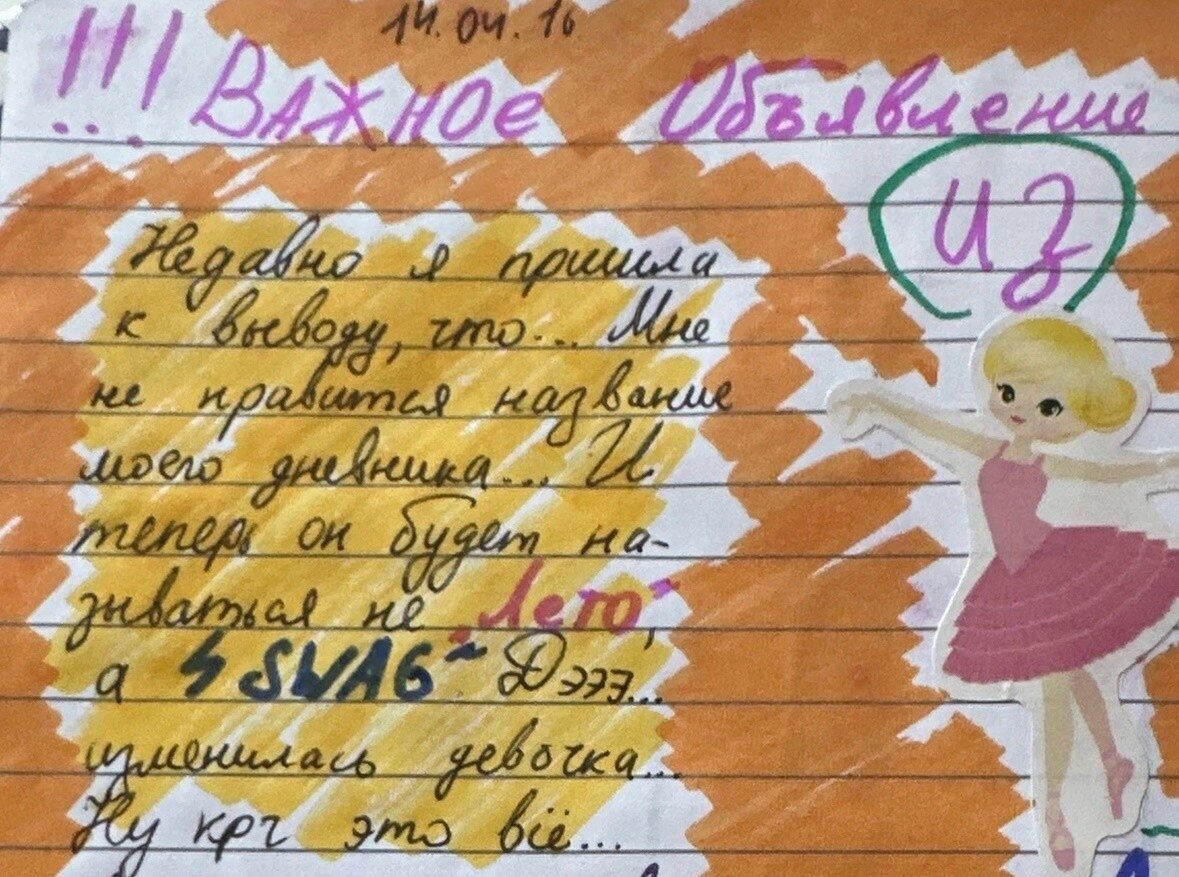 14.04.16
!!! Важное Объявление
ИЗ
Недавно я пришла
к выводу, что... Мне
не нравится название
моего дневника... И
теперь он будет на-
зываться не „Лето",
а SWAG" Дэээ...
изменилась девочка...
Ну крч это всё...